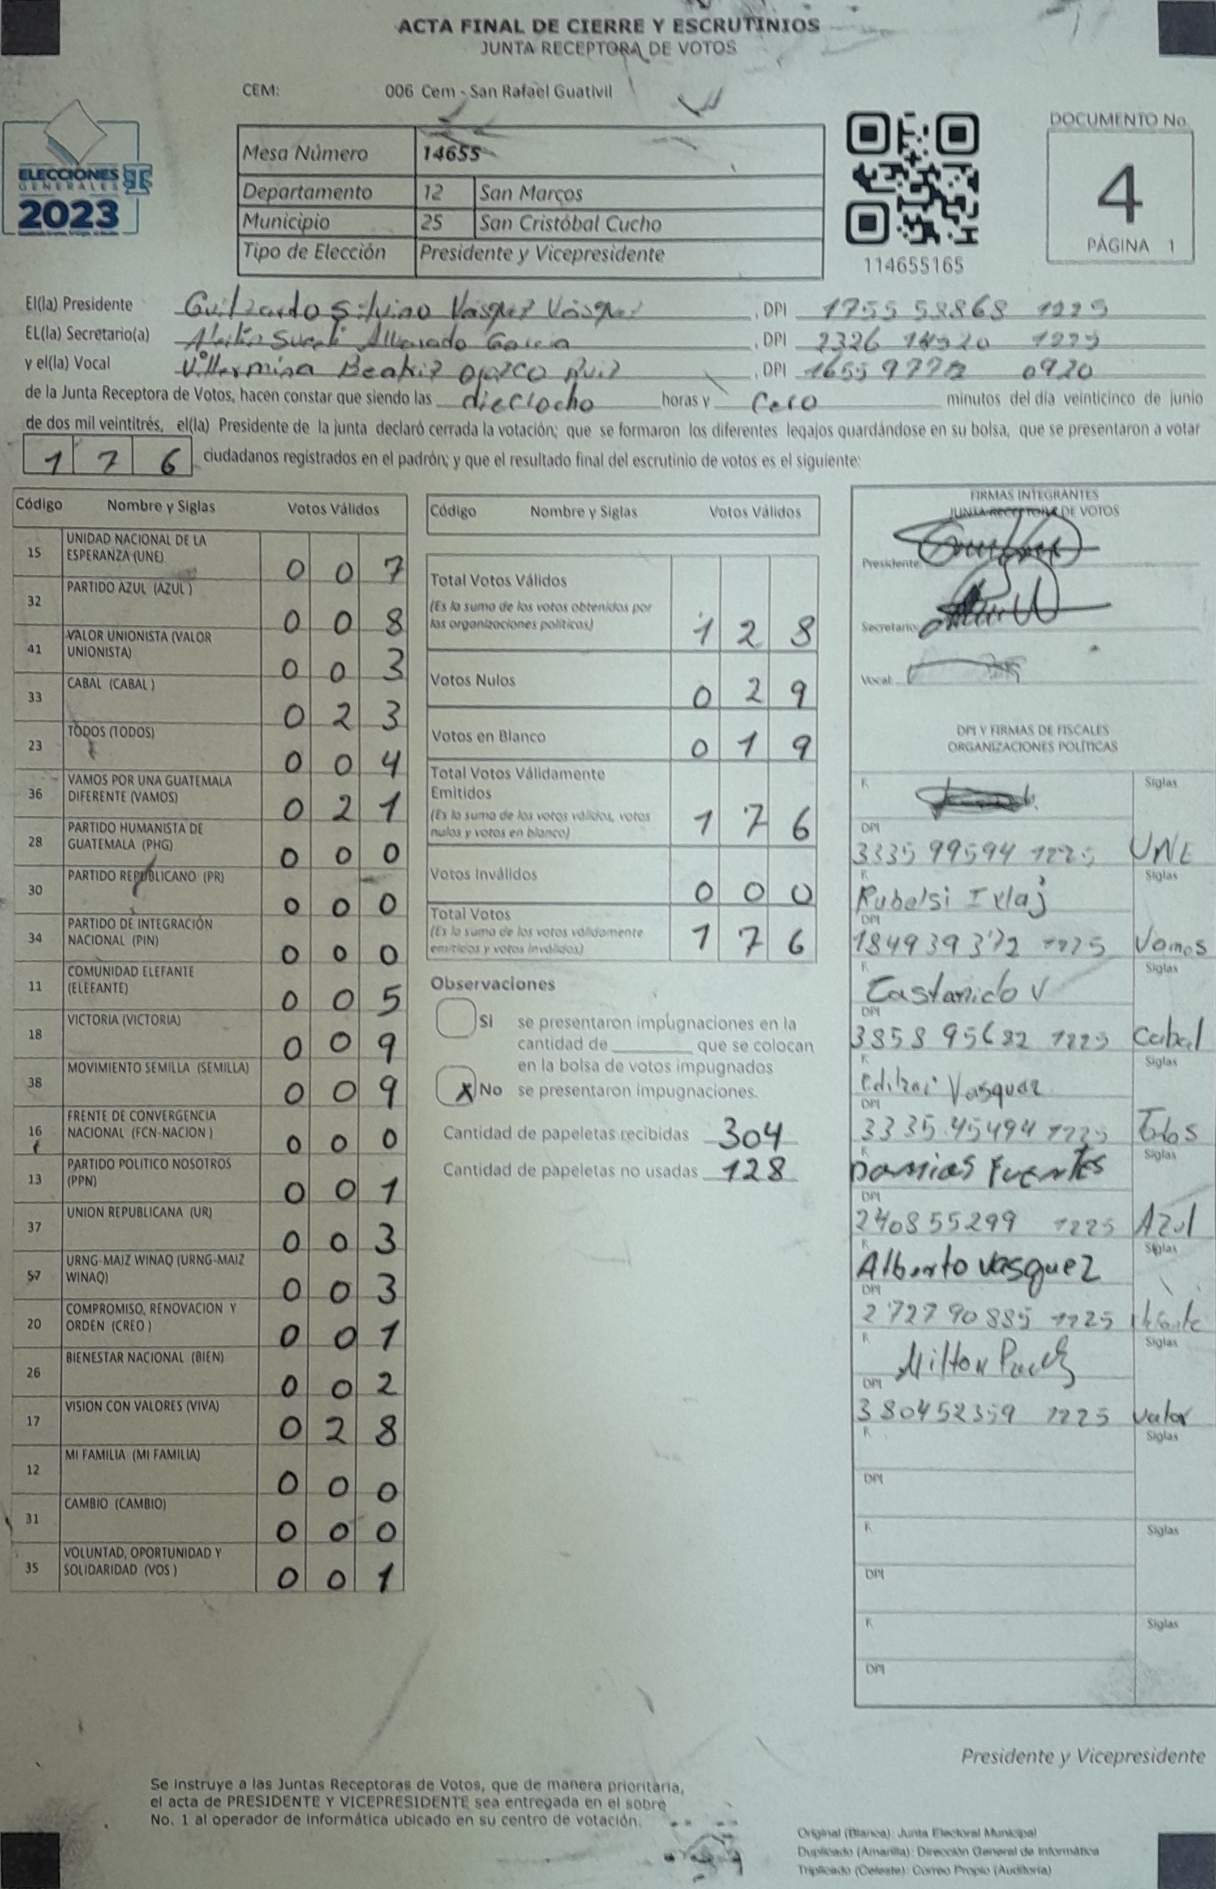 ACTA FINAL DE CIERRE Y ESCRUTINIOS
JUNTA RECEPTORA DE VOTOS
CEM: 006 Cem - San Rafael Guativil
ELECCIONES
GENERALES
2023
Mesa Número 14655
Departamento 12 San Marcos
Municipio 25 San Cristóbal Cucho
Tipo de Elección Presidente y Vicepresidente
114655165
DOCUMENTO No.
4
PÁGINA 1
El(la) Presidente Silvino Vásquez Vásquez, DPI 1755 58868 1225
EL(la) Secretario(a) Alvarado Garcia, DPI 2326 1225
y el(la) Vocal Beatriz Orozco Ruiz, DPI 1655 0920
de la Junta Receptora de Votos, hacen constar que siendo las dieciocho horas y Cero minutos del día veinticinco de junio
de dos mil veintitrés, el(la) Presidente de la junta declaró cerrada la votación; que se formaron los diferentes legajos guardándose en su bolsa, que se presentaron a votar
176 ciudadanos registrados en el padrón; y que el resultado final del escrutinio de votos es el siguiente:
Código Nombre y Siglas Votos Válidos
15 UNIDAD NACIONAL DE LA ESPERANZA (UNE) 0 0 7
32 PARTIDO AZUL (AZUL) 0 0 8
41 VALOR UNIONISTA (VALOR UNIONISTA) 0 0 3
33 CABAL (CABAL) 0 2 3
23 TODOS (TODOS) 0 0 4
36 VAMOS POR UNA GUATEMALA DIFERENTE (VAMOS) 0 2 1
28 PARTIDO HUMANISTA DE GUATEMALA (PHG) 0 0 0
30 PARTIDO REPUBLICANO (PR) 0 0 0
34 PARTIDO DE INTEGRACIÓN NACIONAL (PIN) 0 0 0
11 COMUNIDAD ELEFANTE (ELEFANTE) 0 0 5
18 VICTORIA (VICTORIA) 0 0 9
38 MOVIMIENTO SEMILLA (SEMILLA) 0 0 9
16 FRENTE DE CONVERGENCIA NACIONAL (FCN-NACION) 0 0 0
13 PARTIDO POLITICO NOSOTROS (PPN) 0 0 1
37 UNION REPUBLICANA (UR) 0 0 3
57 URNG-MAIZ WINAQ (URNG-MAIZ WINAQ) 0 0 3
20 COMPROMISO, RENOVACION Y ORDEN (CREO) 0 0 1
26 BIENESTAR NACIONAL (BIEN) 0 0 2
17 VISION CON VALORES (VIVA) 0 2 8
12 MI FAMILIA (MI FAMILIA) 0 0 0
31 CAMBIO (CAMBIO) 0 0 0
35 VOLUNTAD, OPORTUNIDAD Y SOLIDARIDAD (VOS) 0 0 1
Código Nombre y Siglas Votos Válidos
Total Votos Válidos
(Es la suma de los votos obtenidos por
las organizaciones políticas) 1 2 8
Votos Nulos 0 2 9
Votos en Blanco 0 1 9
Total Votos Válidamente
Emitidos
(Es la suma de los votos válidos, votos
nulos y votos en blanco) 1 7 6
Votos Inválidos 0 0 0
Total Votos
(Es la suma de los votos válidamente
emitidos y votos inválidos) 1 7 6
Observaciones
Si se presentaron impugnaciones en la
cantidad de ________ que se colocan
en la bolsa de votos impugnados
X No se presentaron impugnaciones.
Cantidad de papeletas recibidas 304
Cantidad de papeletas no usadas 128
FIRMAS INTEGRANTES
JUNTA RECEPTORA DE VOTOS
Presidente
Secretario
Vocal
DPI Y FIRMAS DE FISCALES
ORGANIZACIONES POLÍTICAS
F. Siglas
DPI
3335 99594 1225 UNE
F. Rubelsi Ixlaj Siglas
DPI
184939372 1225 Vamos
F. Castanido V Siglas
DPI
3858 95682 1225 Cabal
F. Vasquez Siglas
DPI
3335 45494 1225 Todos
F. Damias Fuentes Siglas
DPI
240855299 1225 Azul
F. Alberto Vasquez Siglas
DPI
272790885 1225
F. Milton Siglas
DPI
380452359 1225 Valor
F. Siglas
DPI
F. Siglas
DPI
F. Siglas
DPI
Presidente y Vicepresidente
Se instruye a las Juntas Receptoras de Votos, que de manera prioritaria,
el acta de PRESIDENTE Y VICEPRESIDENTE sea entregada en el sobre
No. 1 al operador de informática ubicado en su centro de votación.
Original (Blanca): Junta Electoral Municipal
Duplicado (Amarilla): Dirección General de Informática
Triplicado (Celeste): Correo Propio (Auditoría)